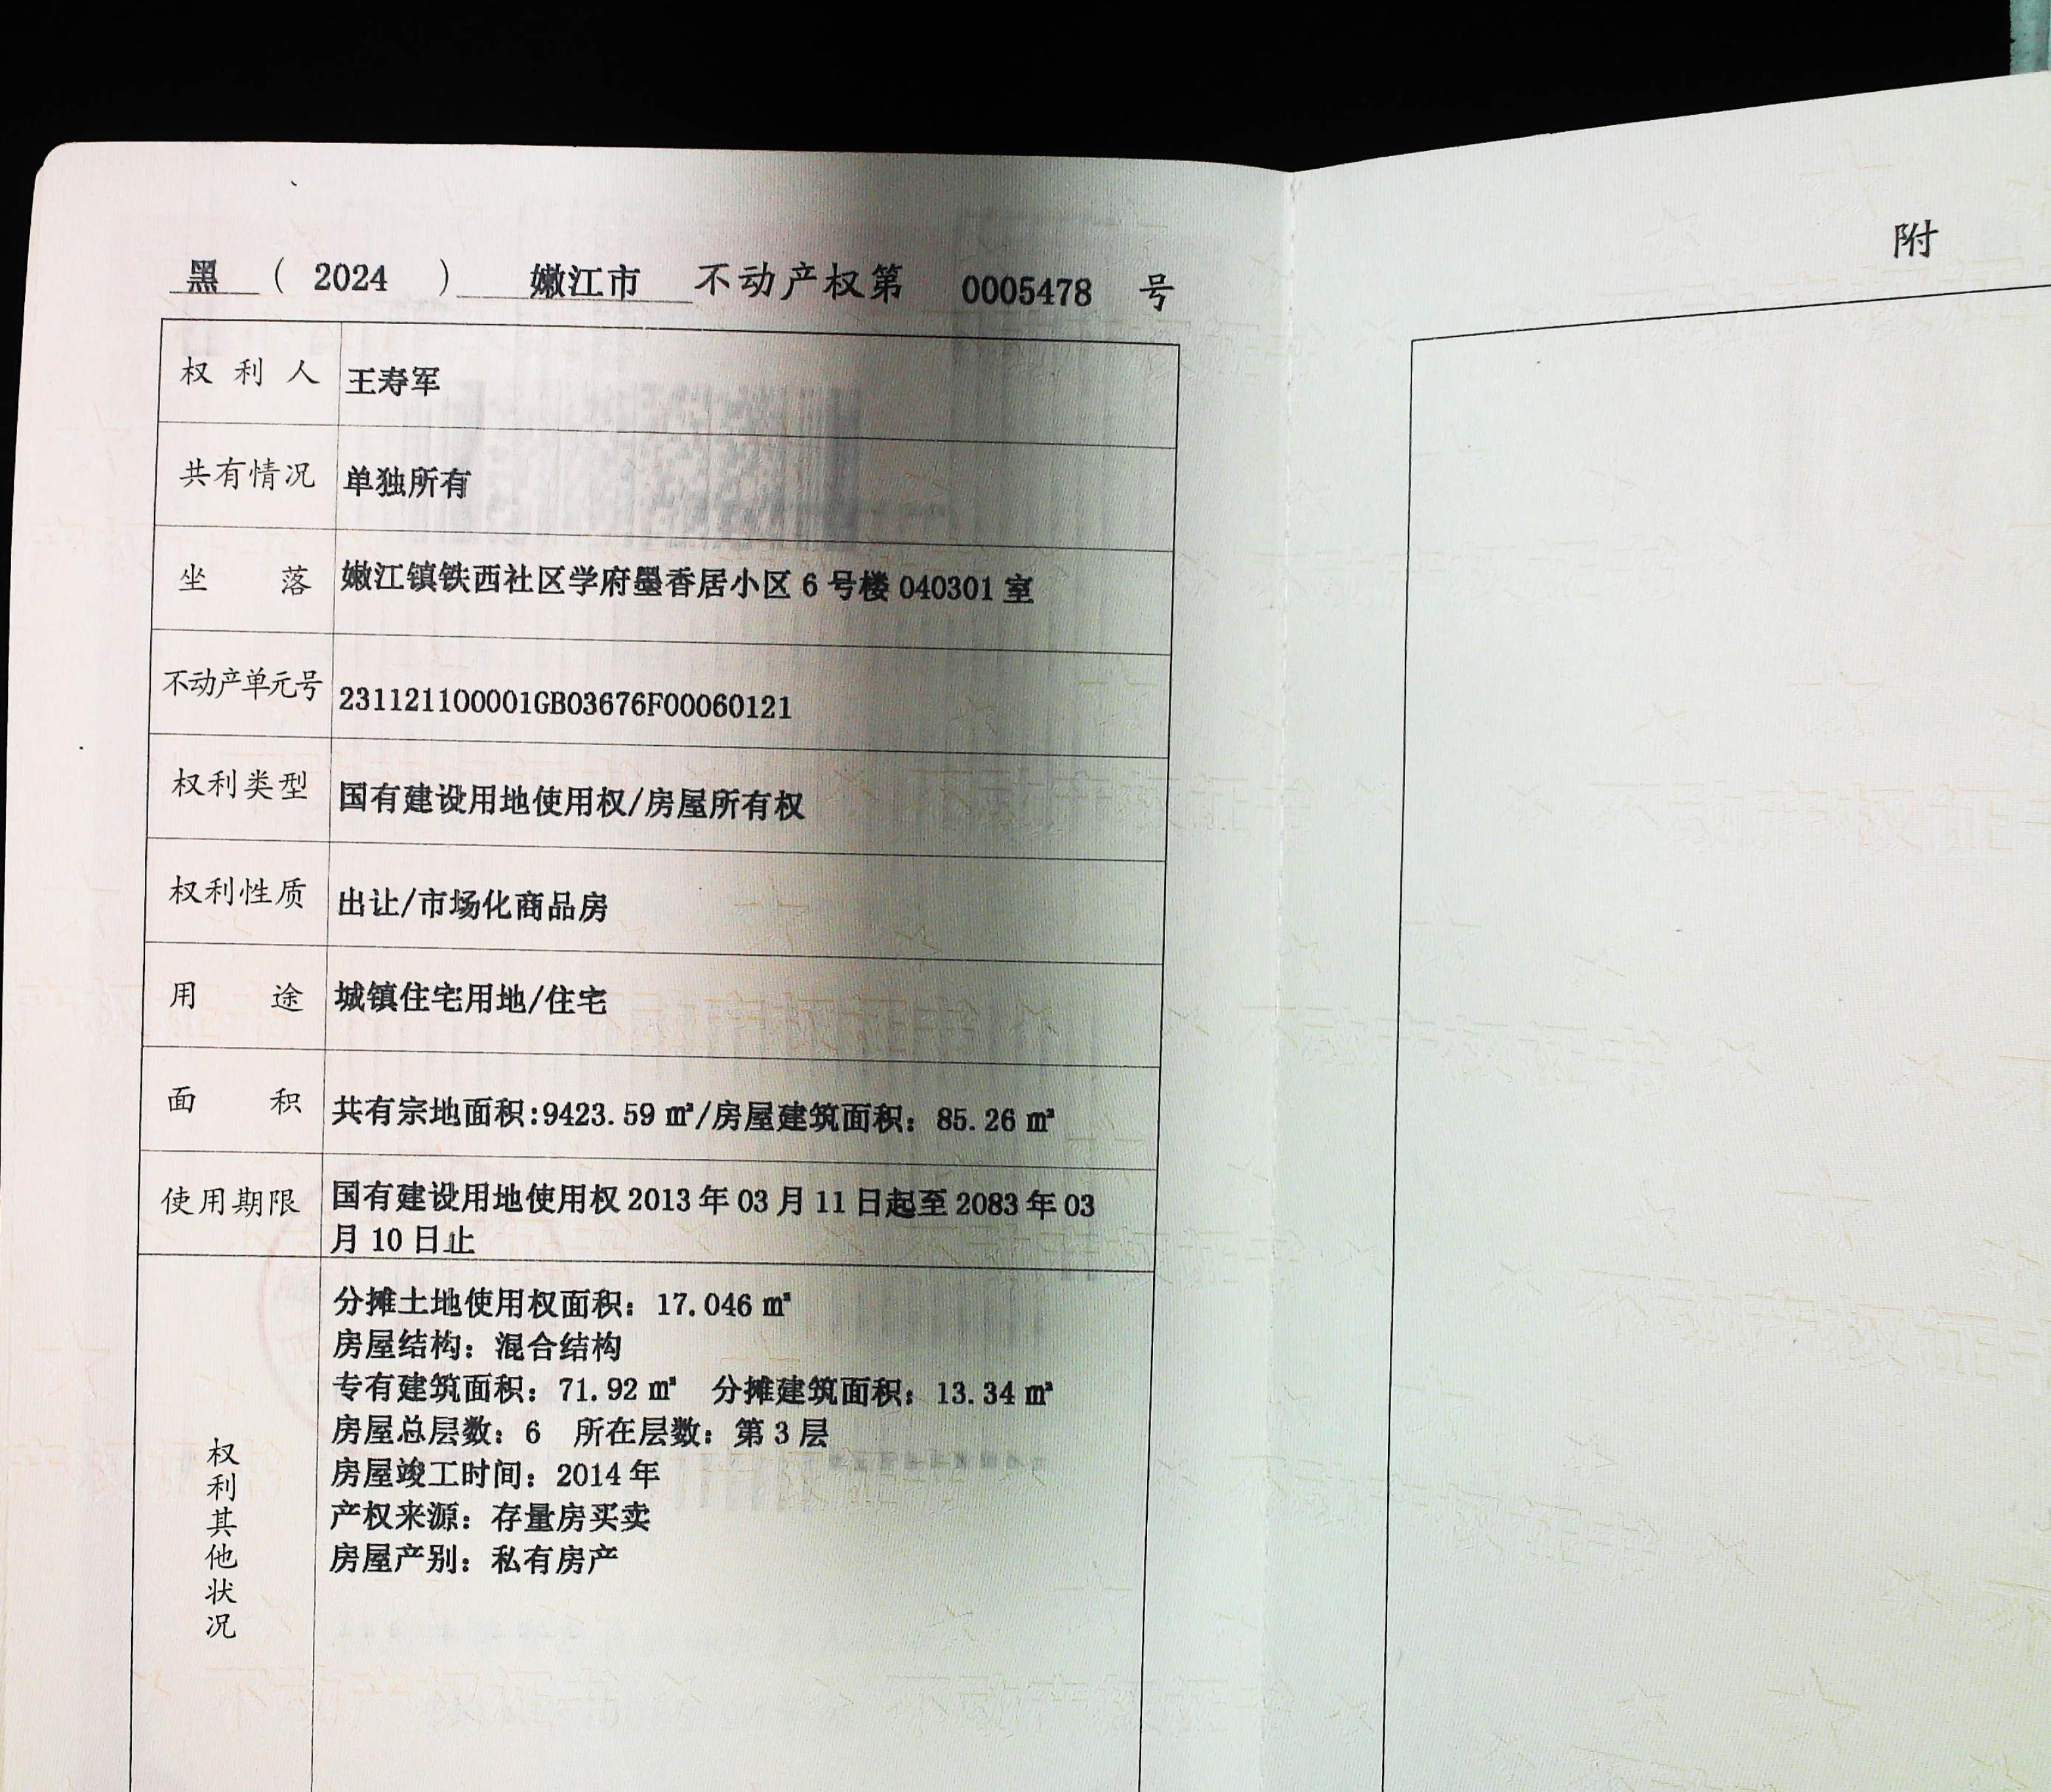 黑 ( 2024 ) 嫩江市 不动产权第 0005478 号
权利人 王寿军
共有情况 单独所有
坐落 嫩江镇铁西社区学府墨香居小区 6 号楼 040301 室
不动产单元号 231121100001GB03676F00060121
权利类型 国有建设用地使用权/房屋所有权
权利性质 出让/市场化商品房
用途 城镇住宅用地/住宅
面积 共有宗地面积:9423.59 ㎡/房屋建筑面积：85.26 ㎡
使用期限 国有建设用地使用权 2013 年 03 月 11 日起至 2083 年 03
月 10 日止
权利其他状况
分摊土地使用权面积：17.046 ㎡
房屋结构：混合结构
专有建筑面积：71.92 ㎡ 分摊建筑面积：13.34 ㎡
房屋总层数：6 所在层数：第 3 层
房屋竣工时间：2014 年
产权来源：存量房买卖
房屋产别：私有房产
附